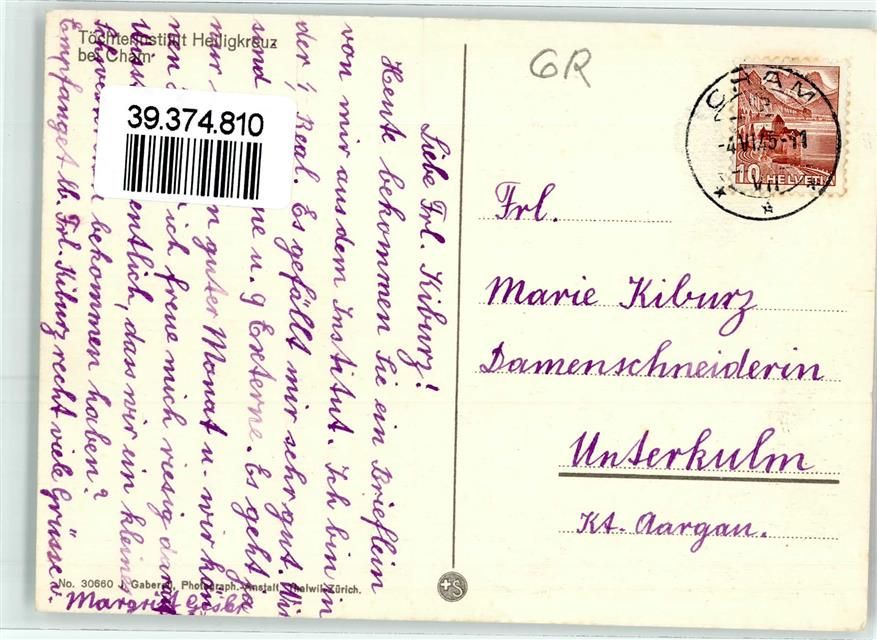 Töchterinstitut Heiligkreuz
bei Cham
39.374.810
GR
CHAM
-4.VII.45-11
VII
10 HELVETIA
Liebe Frl. Kiburz!
Heute bekommen Sie ein Brieflein
von mir aus dem Institut. Ich bin in
der 1. Real. Es gefällt mir sehr gut. Wir
sind ne u. 9 Externe. Es geht ja
nur guter Monat u. wir kön
nen ich freue mich riesig darauf
entlich, dass wir ein kleines
bekommen haben?
Empfanget lb. Frl. Kiburz recht viele Grüsse v.
Margrit
Frl.
Marie Kiburz
Damenschneiderin
Unterkulm
Kt. Aargau.
No. 30660 J. Gaberell, Photograph.-Anstalt, Thalwil-Zürich.
+S